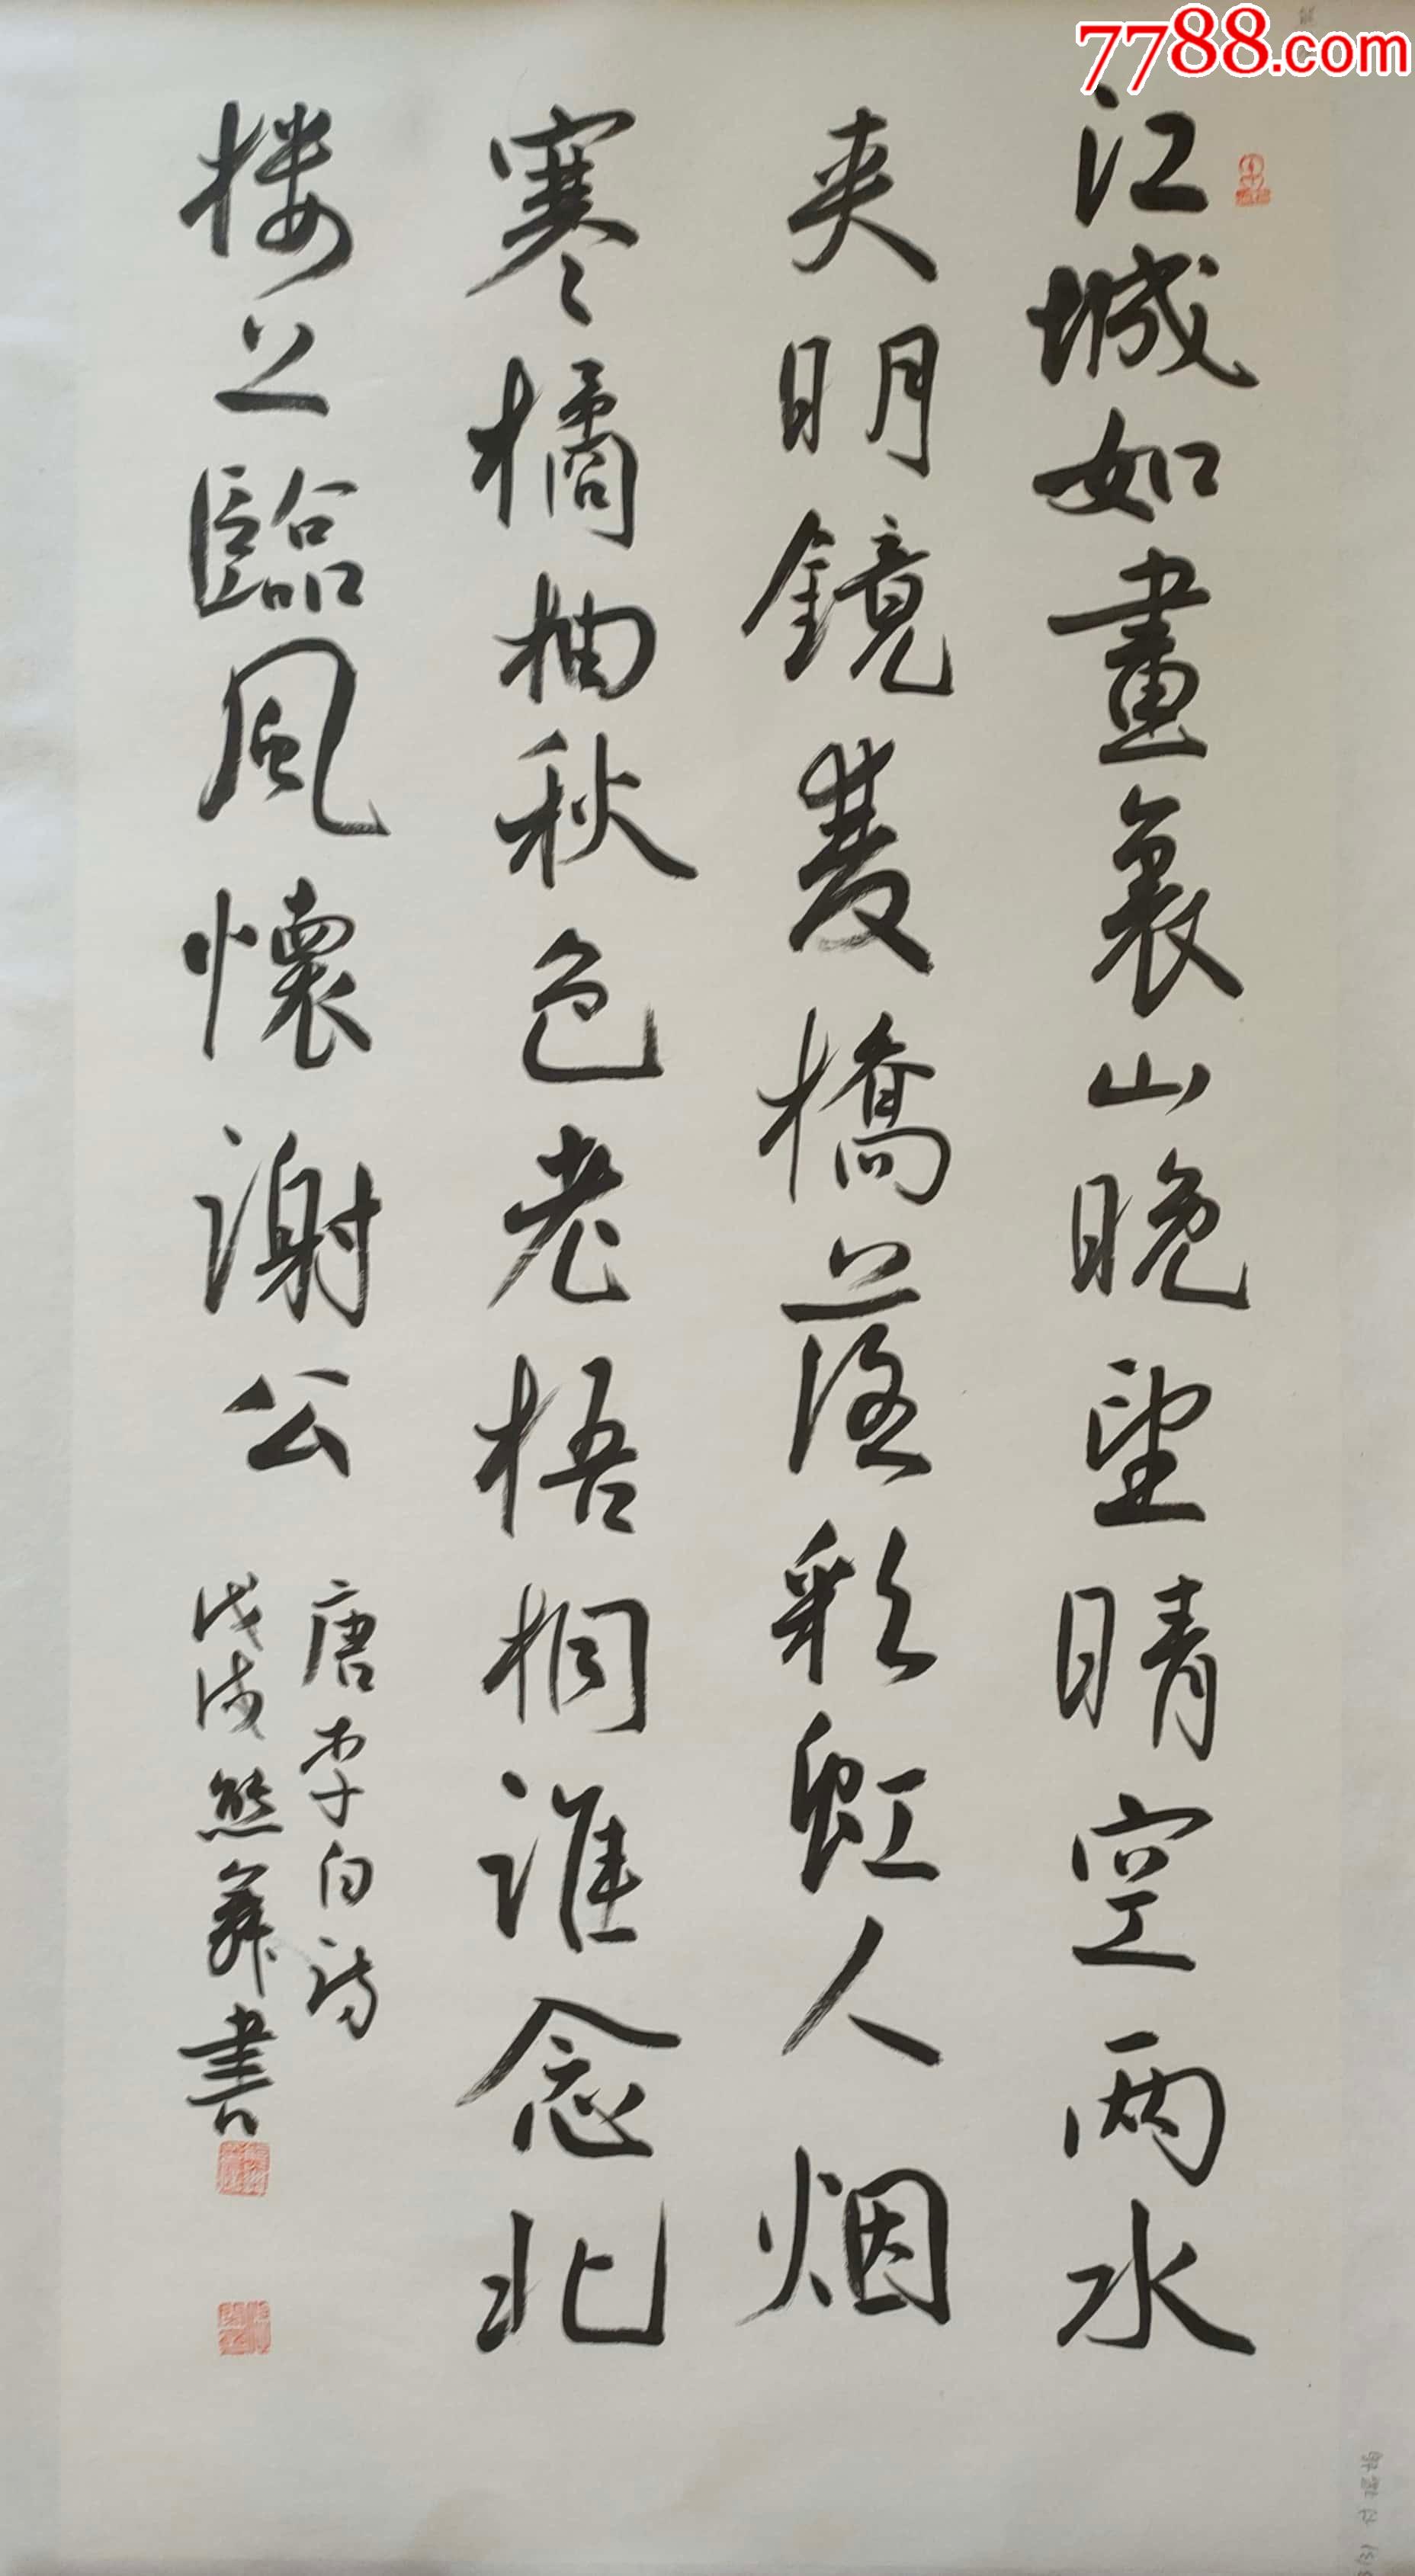 7788.com
江城如畫裏山晚望晴空两水
夹明鏡雙橋落彩虹人烟
寒橘柚秋色老梧桐誰念北
楼上臨風懷謝公
唐李白詩
戊戌熊書